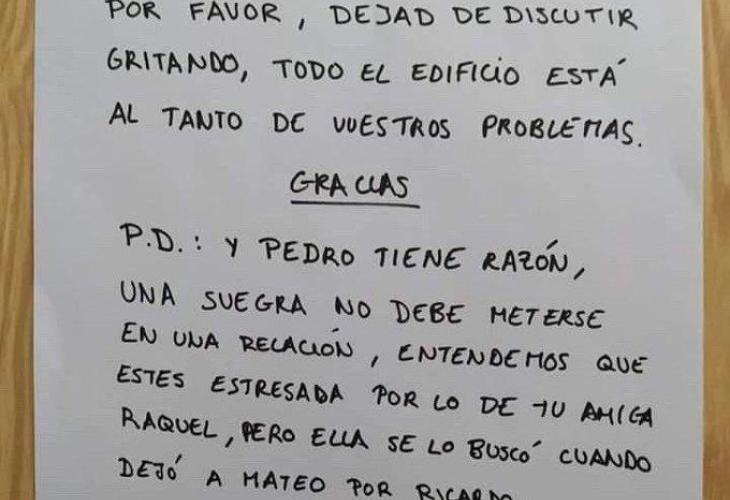 POR FAVOR, DEJAD DE DISCUTIR
GRITANDO, TODO EL EDIFICIO ESTÁ
AL TANTO DE VUESTROS PROBLEMAS.
GRACIAS
P.D.: Y PEDRO TIENE RAZÓN,
UNA SUEGRA NO DEBE METERSE
EN UNA RELACIÓN, ENTENDEMOS QUE
ESTES ESTRESADA POR LO DE TU AMIGA
RAQUEL, PERO ELLA SE LO BUSCÓ CUANDO
DEJÓ A MATEO POR RICARDO